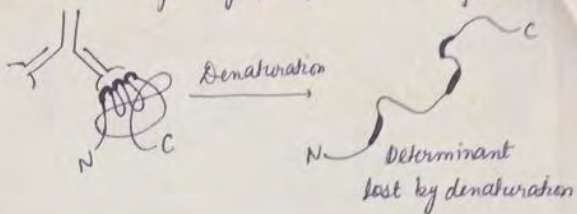 Denaturation
N
C
N
C
Determinant
lost by denaturation